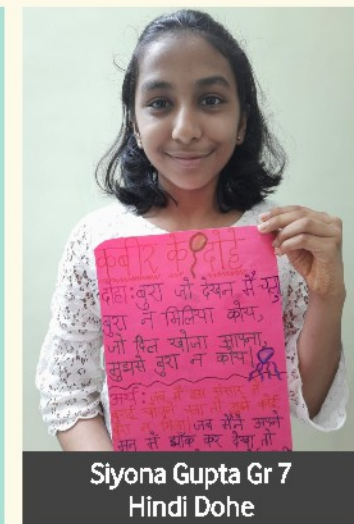 कबीर के दोहे
दोहा: बुरा जो देखन मैं
बुरा न मिलिया कोय,
जो दिल खोजा आपना,
मुझसे बुरा न कोय।
अर्थ: जब मैं इस संसार में
बुराई खोजने चला तो मुझे कोई
बुरा न मिला। जब मैंने अपने
मन में झाँक कर देखा तो
Siyona Gupta Gr 7
Hindi Dohe